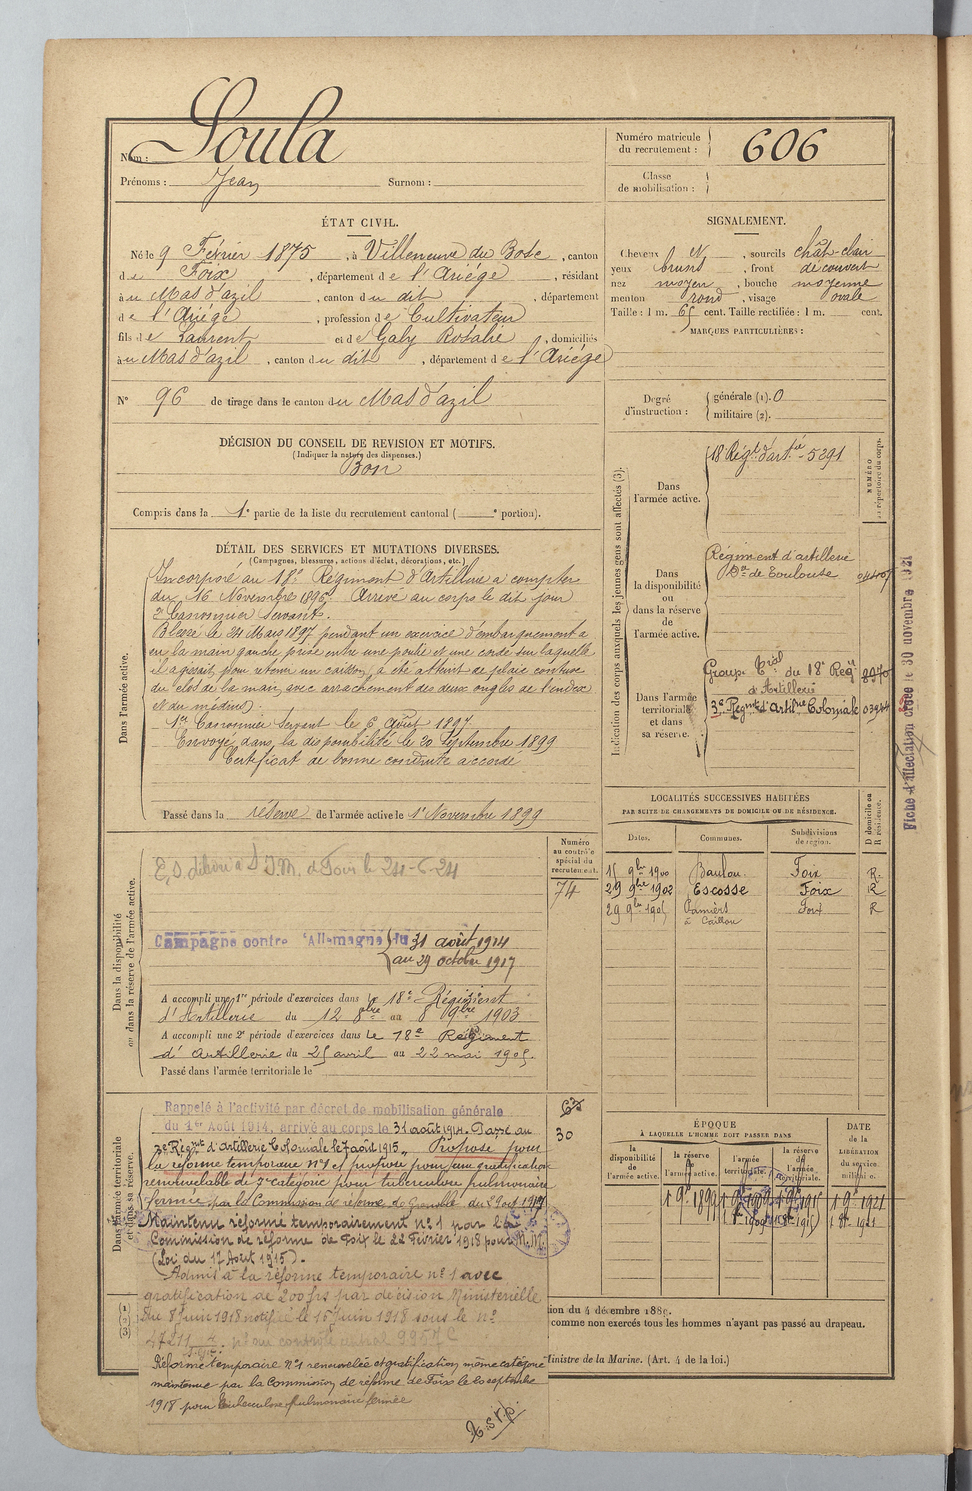 Nom : Soula
Prénoms : Jean Surnom :
Numéro matricule du recrutement : 606
Classe de mobilisation :
ÉTAT CIVIL.
Né le 9 Février 1875, à Villeneuve du Bosc, canton
de Foix, département de l'Ariége, résidant
à u Mas d'azil, canton du dit, département
de l'Ariége, profession de Cultivateur
fils de Laurent et de Galy Rosalie, domiciliés
à u Mas d'azil, canton du dit, département de l'Ariége
N° 96 de tirage dans le canton du Mas d'azil
SIGNALEMENT.
Cheveux et, sourcils chât-clair
yeux bruns, front découvert
nez moyen, bouche moyenne
menton rond, visage ovale
Taille : 1 m. 65 cent. Taille rectifiée : 1 m. cent.
MARQUES PARTICULIÈRES :
Degré d'instruction : générale (1). 0
militaire (2).
DÉCISION DU CONSEIL DE REVISION ET MOTIFS.
(Indiquer la nature des dispenses.)
Bon
Compris dans la 1e partie de la liste du recrutement cantonal ( e portion).
DÉTAIL DES SERVICES ET MUTATIONS DIVERSES.
(Campagnes, blessures, actions d'éclat, décorations, etc.)
Dans l'armée active.
Incorporé au 18e Régiment d'Artillerie a compter
du 16 Novembre 1896. Arrivé au corps le dit jour
2e Canonnier Servant.
Blessé le 24 Mars 1897 pendant un exercice d'embarquement a
eu la main gauche prise entre une poulie et une corde sur laquelle
il agissait pour retenir un caisson, a été atteint de plaie contuse
du dos de la main, avec arrachement des deux ongles de l'index
et du médius).
1er Canonnier Servant le 6 Août 1897.
Envoyé dans la disponibilité le 20 Septembre 1899
Certificat de bonne conduite accordé
Passé dans la réserve de l'armée active le 1er Novembre 1899
Indication des corps auxquels les jeunes gens sont affectés (3).
NUMÉRO au répertoire du corps.
Dans l'armée active.
18 Régt d'artie - 5291
Dans la disponibilité ou dans la réserve de l'armée active.
Régiment d'artillerie
Don de Toulouse
Dans l'armée territoriale et dans sa réserve.
Group. Tral du 18e Régt
d'Artillerie
3e Régmt d'Artilrie Coloniale
Fiche d'affectation créée le 30 novembre 1921
LOCALITÉS SUCCESSIVES HABITÉES
PAR SUITE DE CHANGEMENTS DE DOMICILE OU DE RÉSIDENCE.
Dates. Communes. Subdivisions de région. D domicile ou R résidence.
15 9bre 1900 Baulou Foix R.
29 9bre 1902 Escosse Foix R
29 9bre 1905 Pamiers à Caillou Foix R
Dans la disponibilité ou dans la réserve de l'armée active.
Numéro au contrôle spécial du recrutement.
74
E.S. délivré a S.I.M. d Foix le 24-6-24
Campagne contre l'Allemagne du 31 août 1914
au 29 octobre 1917
A accompli une 1re période d'exercices dans le 18e Régiment
d'Artillerie du 12 8bre au 8 9bre 1903
A accompli une 2e période d'exercices dans le 18e Régiment
d'Artillerie du 25 avril au 22 mai 1905.
Passé dans l'armée territoriale le
Dans l'armée territoriale et dans sa réserve.
63
30
Rappelé à l'activité par décret de mobilisation générale
du 1er Août 1914, arrivé au corps le 31 août 1914. Passé au
3e Régmt d'Artillerie Coloniale le 7 août 1915. Proposé pour
la réforme temporaire n°1 et proposé pour une gratification
renouvelable de 7e catégorie pour tuberculose pulmonaire
fermée par la Commission de réforme de Grenoble du 29 oct 1917
Maintenu réformé temporairement n°1 par la
Commission de réforme de Foix le 22 Février 1918 pour M.M.
(Loi du 17 Août 1915).
Admis à la réforme temporaire n°1 avec
gratification de 200 frs par décision Ministérielle
du 8 Juin 1918 notifiée le 15 Juin 1918 sous le n°
Réforme temporaire n°1 renouvelée et gratification même catégorie
maintenue par la Commission de réforme de Foix le septembre
1918 pour tuberculose pulmonaire fermée
ÉPOQUE
À LAQUELLE L'HOMME DOIT PASSER DANS
la disponibilité de l'armée active. la réserve de l'armée active. l'armée territoriale. la réserve de l'armée territoriale.
DATE de la LIBÉRATION du service militaire.
1 9bre 1899 1 9bre 1909 1 9bre 1915 1 9bre 1921
1 8bre 1909 1 8bre 1915 1 8bre 1921
ion du 4 décembre 1889.
comme non exercés tous les hommes n'ayant pas passé au drapeau.
Ministre de la Marine. (Art. 4 de la loi.)